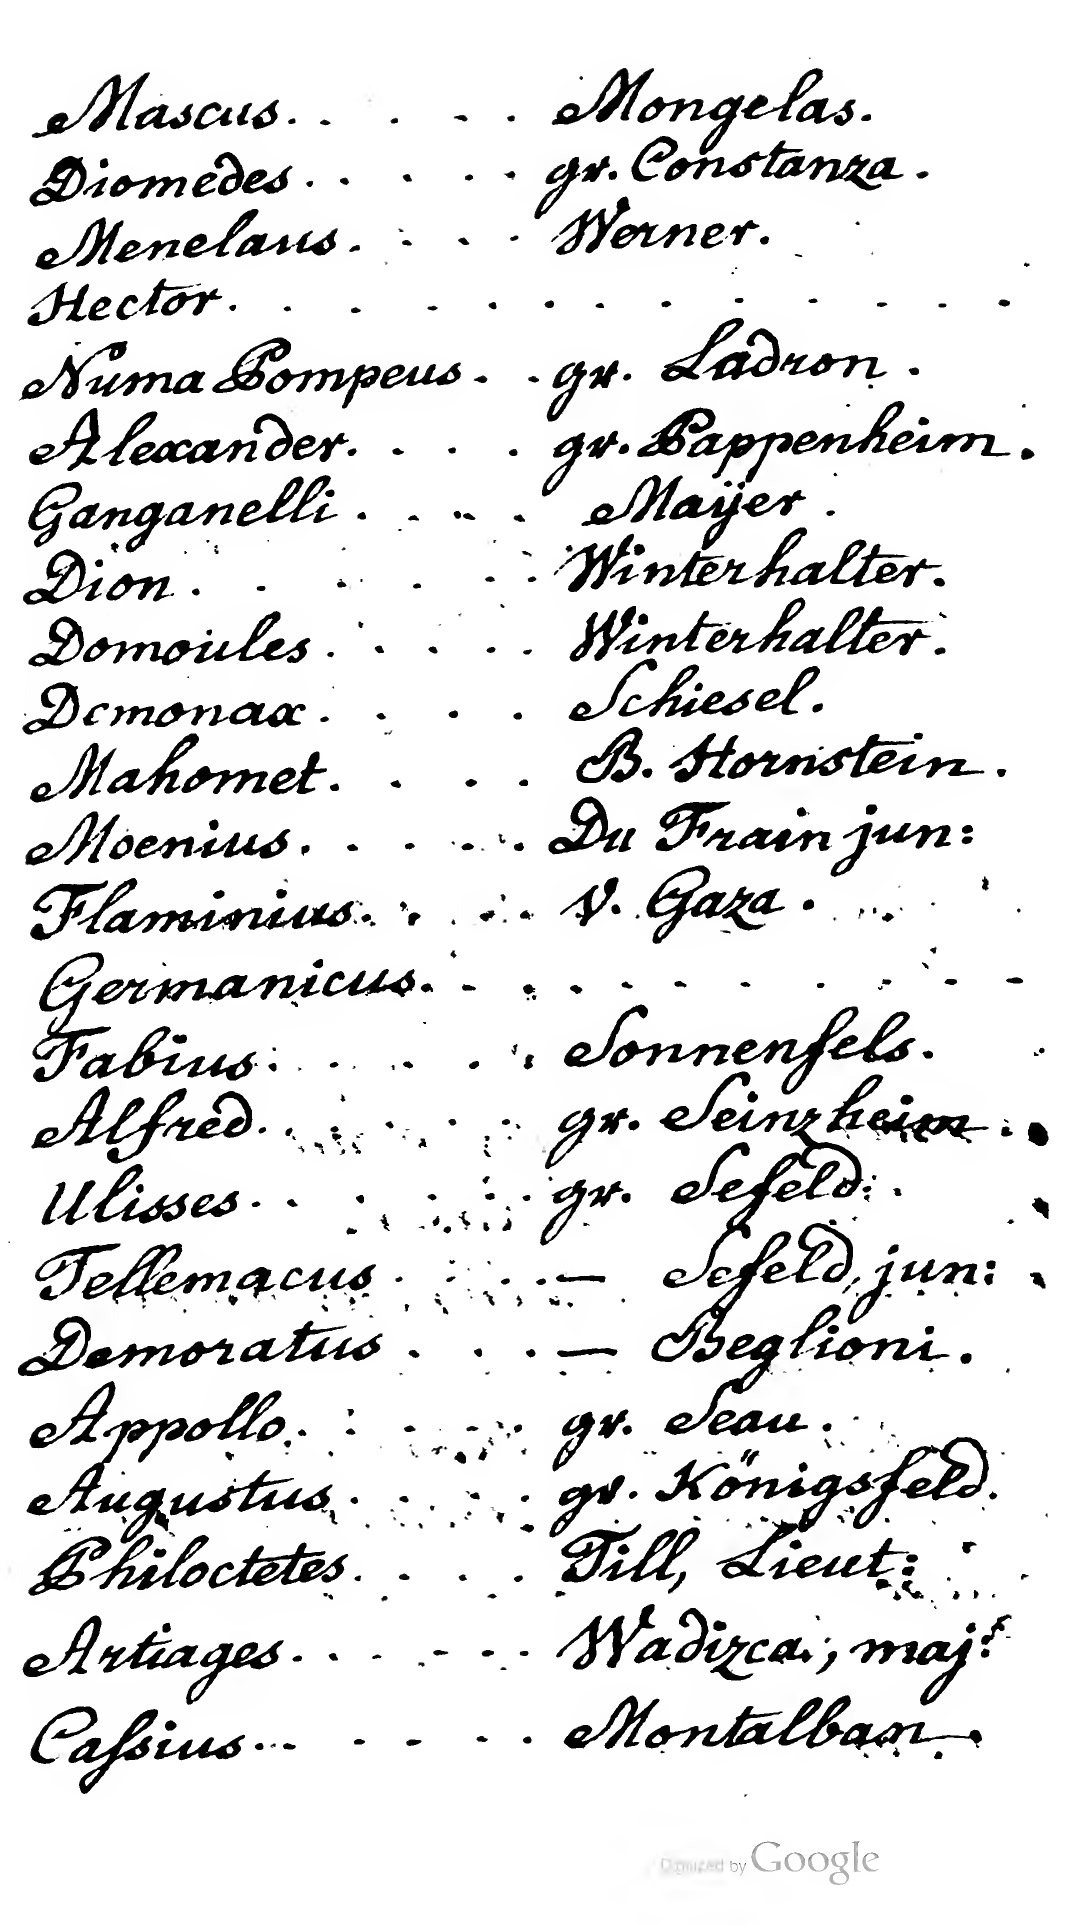 Mascus. . . . . Mongelas.
Diomedes . . . . . gr. Constanza .
Menelaus . . . . Werner.
Hector . . . . . . . . . . . .
Numa Pompeus . . gr. Ladron .
Alexander. . . . gr. Pappenheim .
Ganganelli . . . . Maÿer .
Dion . . . . . . Winterhalter.
Domoiules . . . . . Winterhalter.
Demonax . . . . Schiesel.
Mahomet . . . . B. Hornstein .
Moenius . . . . . Du Frain jun:
Flaminius . . . . V. Gaza .
Germanicus . . . . . . . . . .
Fabius . . . . . Sonnenfels.
Alfred . . . . . gr. Seinzheim .
Ulisses . . . . . gr. Sefeld .
Tellemacus . . . . — Sefeld, jun:
Demoratus . . . — Beglioni .
Appollo . . . . gr. Seau .
Augustus . . . . gr. Königsfeld.
Philoctetes . . . . Till, Lieut:
Artiages . . . . . . Wadizca, maj:
Caſsius . . . . . . Montalban .
Digitized by Google